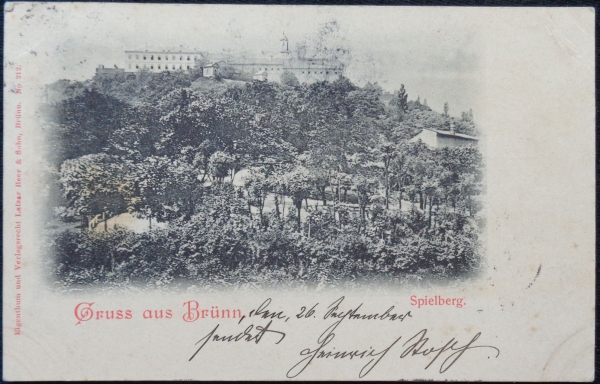 Eigenthum und Verlagsrecht Lafar Beer & Sohn, Brünn. No 212.
Spielberg.
Gruss aus Brünn, den, 26. September
sendet
Heinrich Stosch